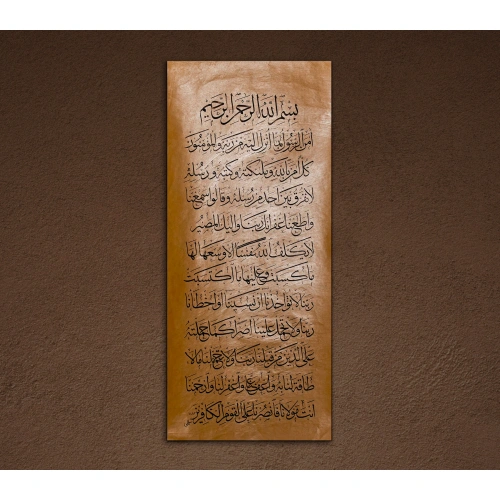 بسم الله الرحمن الرحيم
آمن الرسول بما أنزل إليه من ربه والمؤمنون
كل آمن بالله وملائكته وكتبه ورسله
لا نفرق بين أحد من رسله وقالوا سمعنا
وأطعنا غفرانك ربنا وإليك المصير
لا يكلف الله نفسا إلا وسعها لها
ما كسبت وعليها ما اكتسبت
ربنا لا تؤاخذنا إن نسينا أو أخطأنا
ربنا ولا تحمل علينا إصرا كما حملته
على الذين من قبلنا ربنا ولا تحملنا ما لا
طاقة لنا به واعف عنا واغفر لنا وارحمنا
أنت مولانا فانصرنا على القوم الكافرين